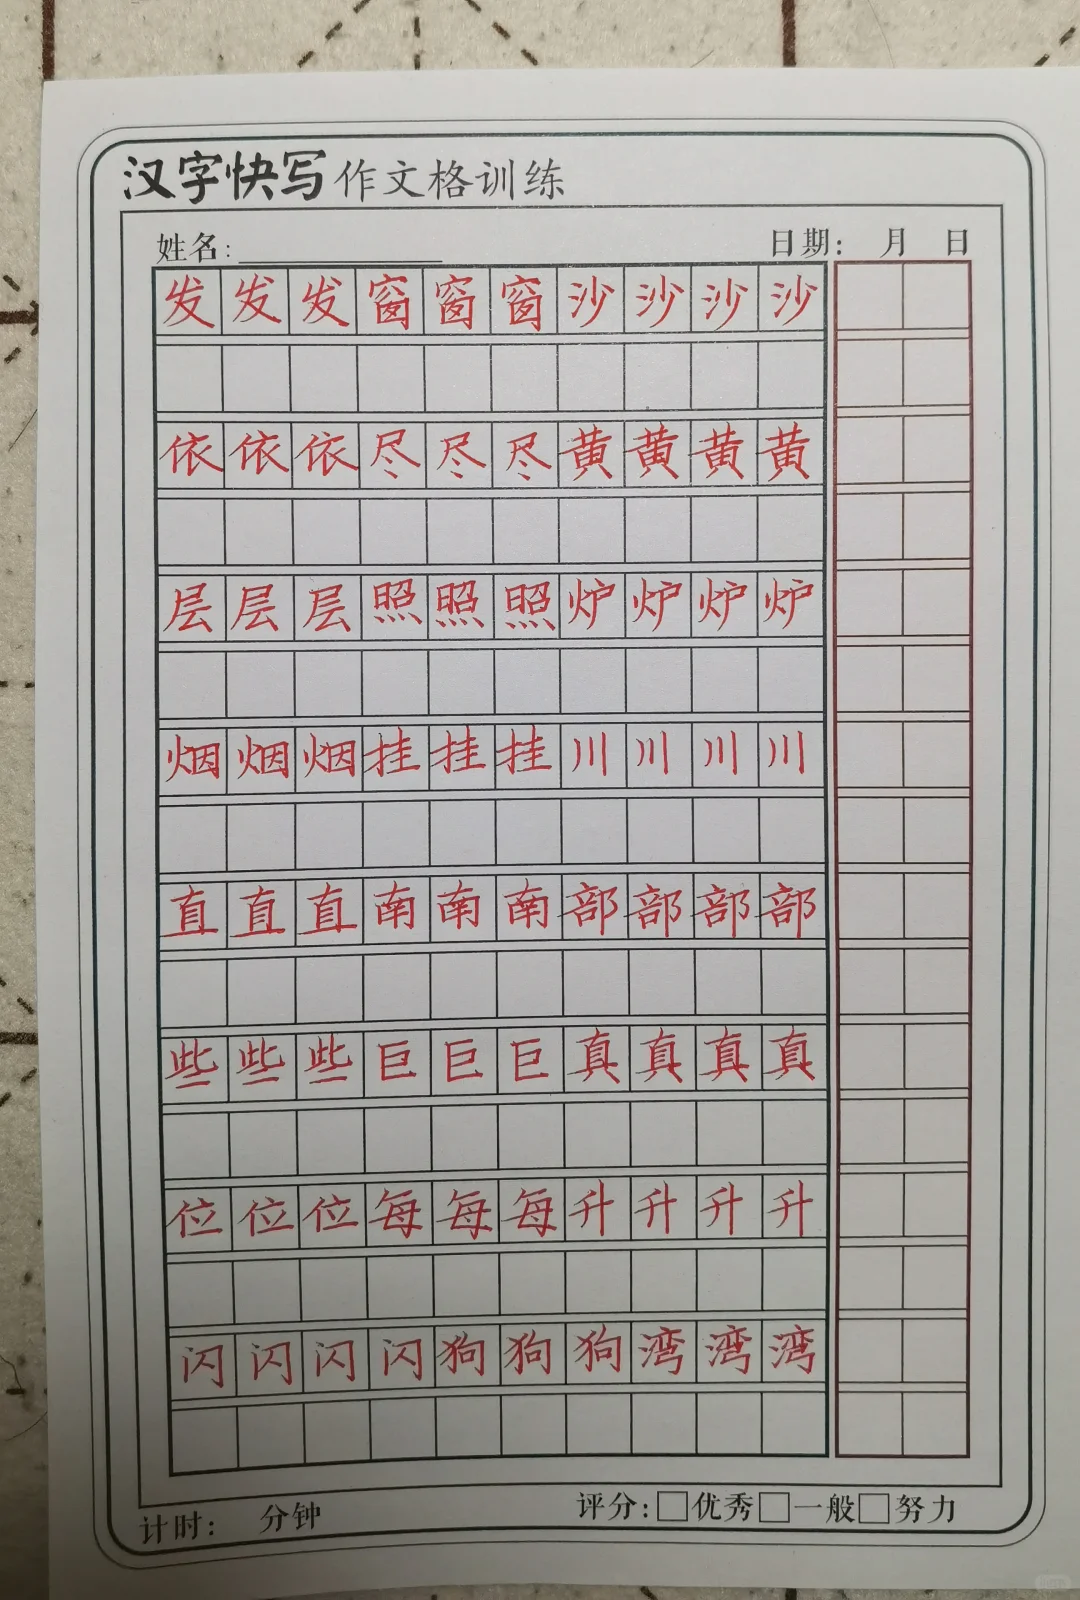 汉字快写作文格训练
姓名: 日期: 月 日
发发发窗窗窗沙沙沙沙
依依依尽尽尽黄黄黄黄
层层层照照照炉炉炉炉
烟烟烟挂挂挂川川川川
直直直南南南部部部部
些些些巨巨巨真真真真
位位位每每每升升升升
闪闪闪闪狗狗狗湾湾湾
计时: 分钟 评分:□优秀□一般□努力